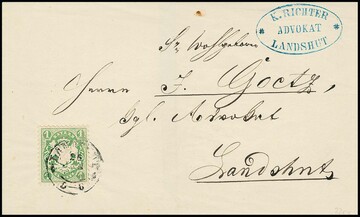 K. RICHTER
ADVOKAT
LANDSHUT
Sr Wohlgeboren
Herrn J. Goetz,
kgl. Advokat
Landshut
1
1